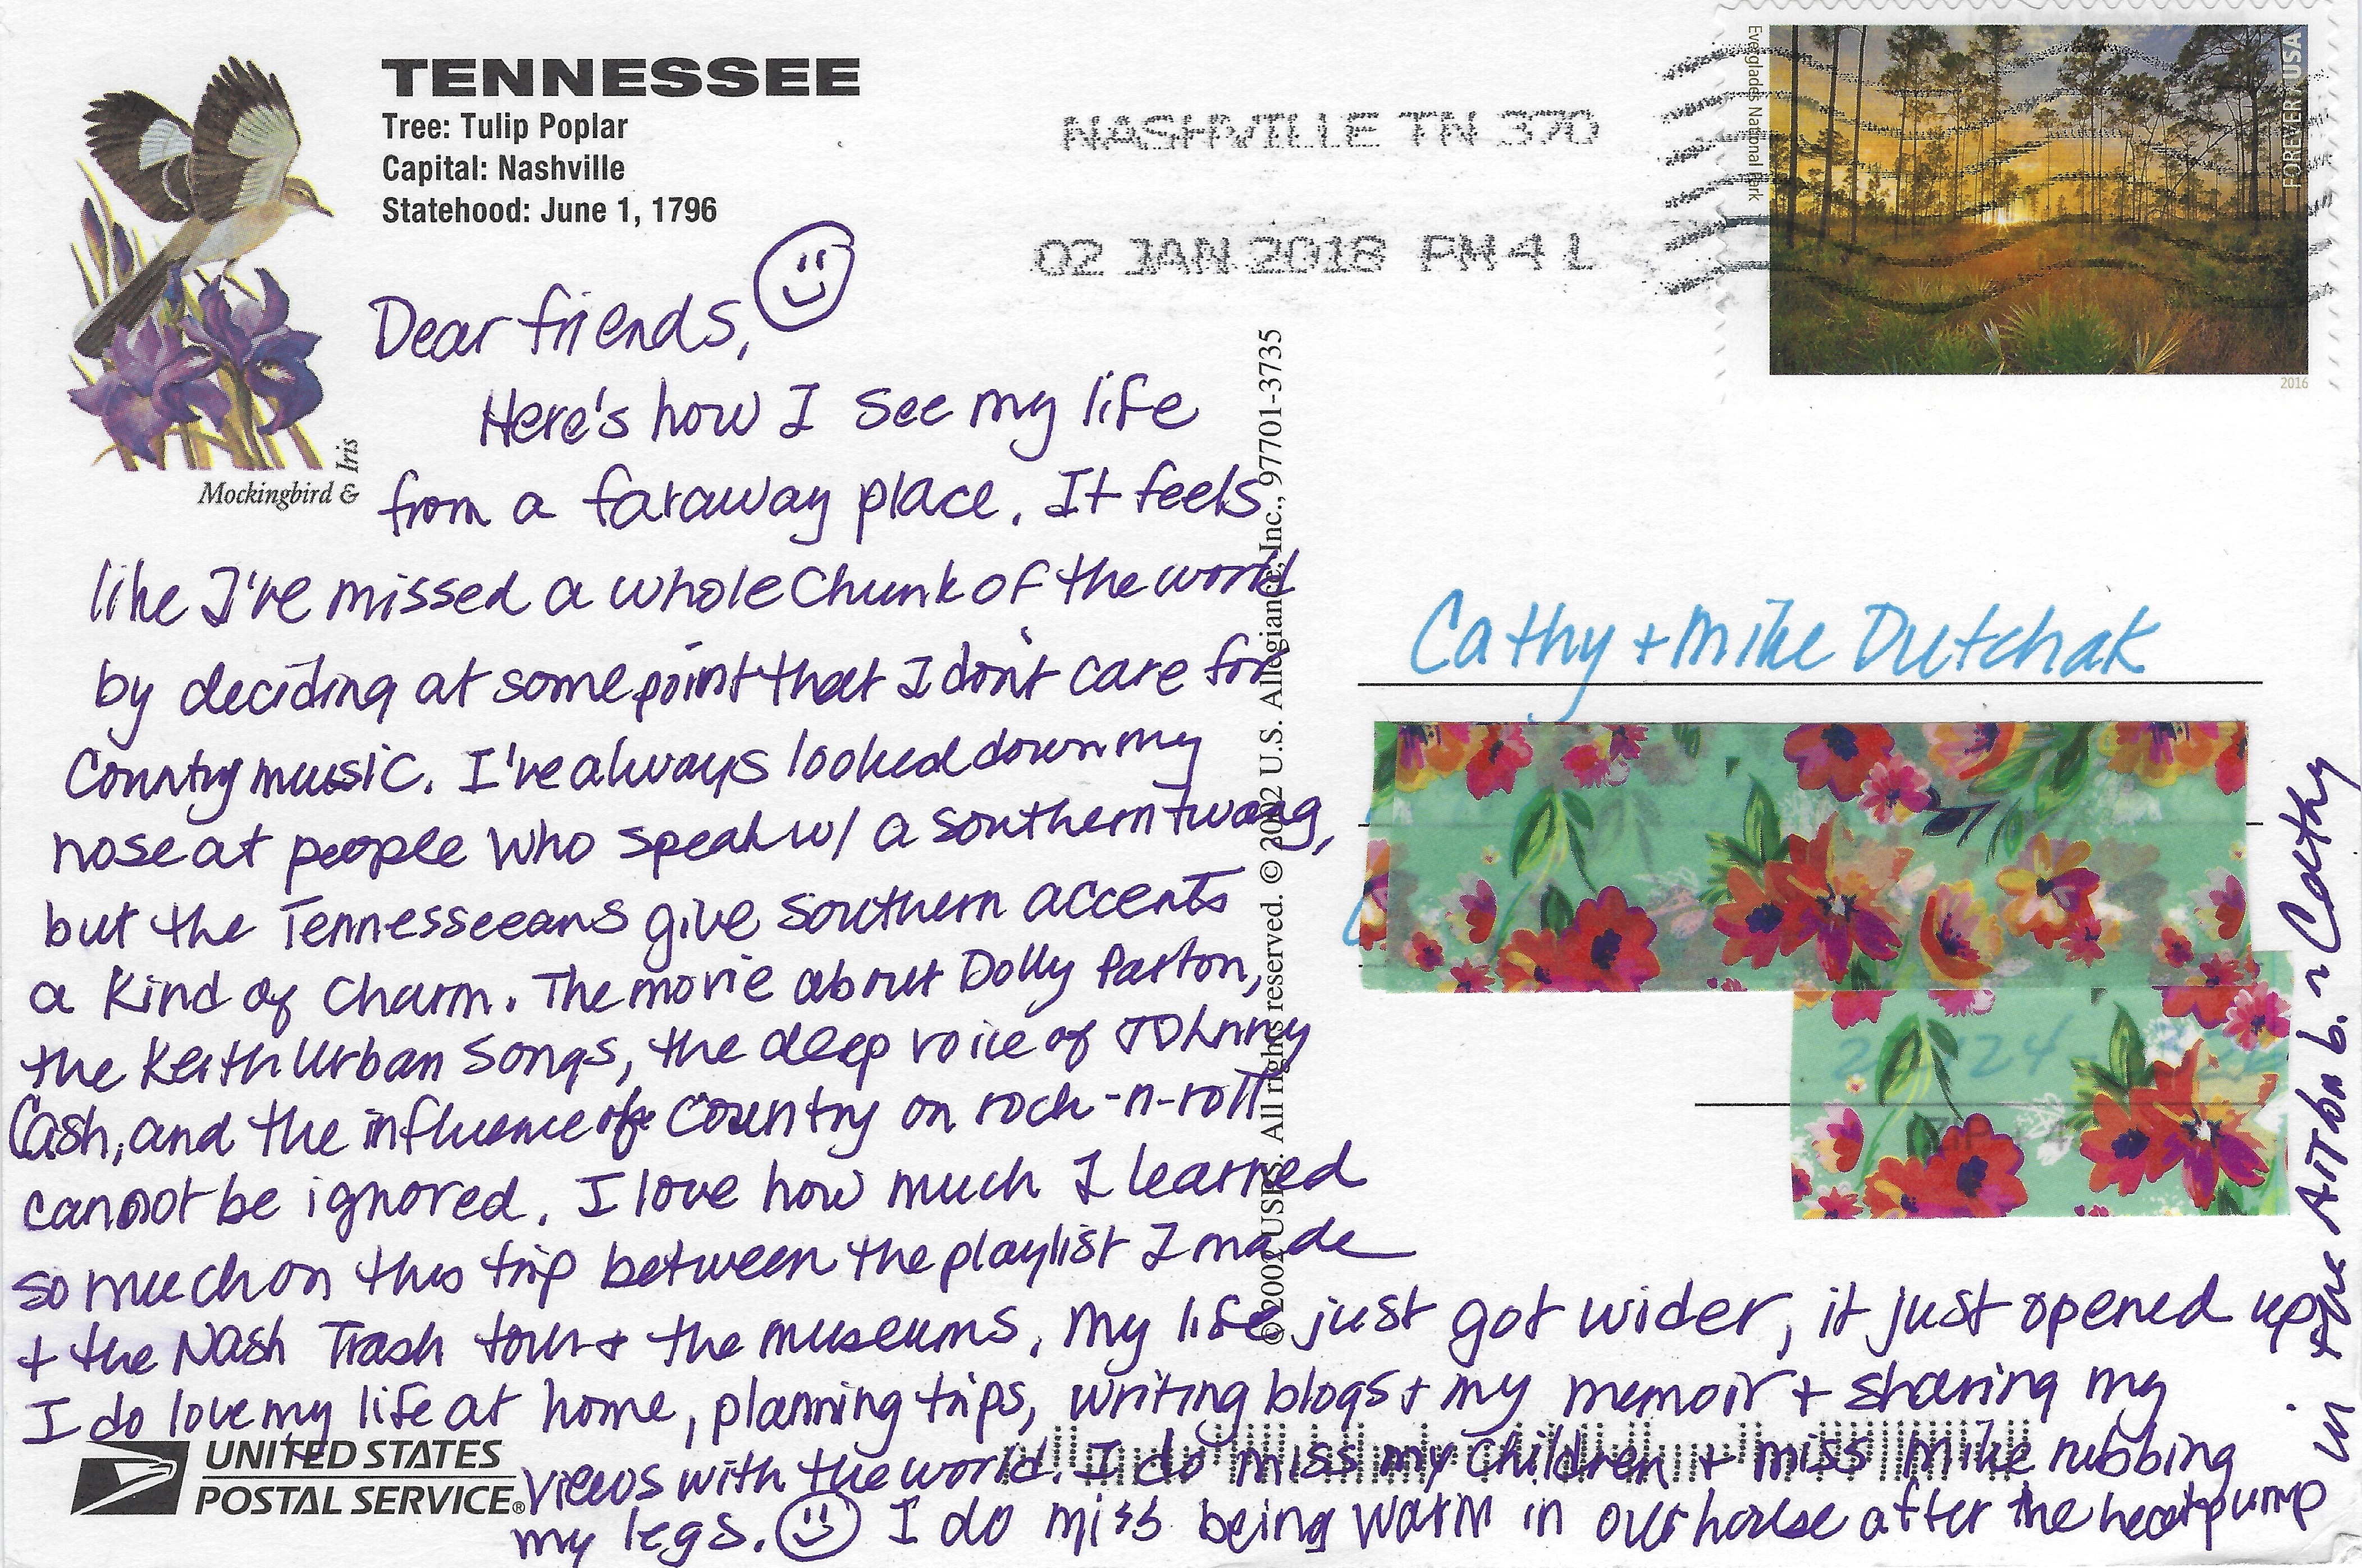 TENNESSEE
Tree: Tulip Poplar
Capital: Nashville
Statehood: June 1, 1796
Mockingbird &
Iris
NASHVILLE TN 370
02 JAN 2018 PM 4 L
Everglades National Park
FOREVER USA
2016
Dear friends,
Here's how I see my life
from a faraway place. It feels
like I've missed a whole chunk of the world
by deciding at some point that I don't care for
Country music. I've always looked down my
nose at people who speak w/ a southern twang,
but the Tennesseeans give southern accents
a kind of charm. The movie about Dolly Parton,
the Keith Urban songs, the deep voice of Johnny
Cash, and the influence of country on rock-n-roll
cannot be ignored. I love how much I learned
so much on this trip between the playlist I made
+ the Nash Trash tour + the museums. My life just got wider, it just opened up
I do love my life at home, planning trips, writing blogs + my memoir + sharing my
views with the world. I do miss my children + miss Mike rubbing
my legs. I do miss being warm in our house after the heat pump
in the Airbnb. ~ Cathy
Cathy + Mike Dutchak
© 2002 USPS. All rights reserved. © 2002 U.S. Allegiance, Inc., 977701-3735
UNITED STATES
POSTAL SERVICE®